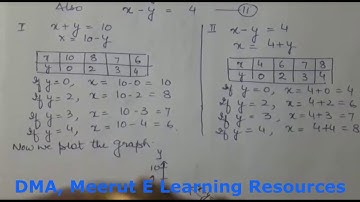 Also x - y = 4 — (II)
I x + y = 10
x = 10 - y
x 10 8 7 6
y 0 2 3 4
If y = 0, x = 10 - 0 = 10
If y = 2, x = 10 - 2 = 8
If y = 3, x = 10 - 3 = 7
If y = 4, x = 10 - 4 = 6.
Now we plot the graph.
II x - y = 4
x = 4 + y
x 4 6 7 8
y 0 2 3 4
If y = 0, x = 4 + 0 = 4
If y = 2, x = 4 + 2 = 6
If y = 3, x = 4 + 3 = 7
If y = 4, x = 4 + 4 = 8
y
10
DMA, Meerut E Learning Resources